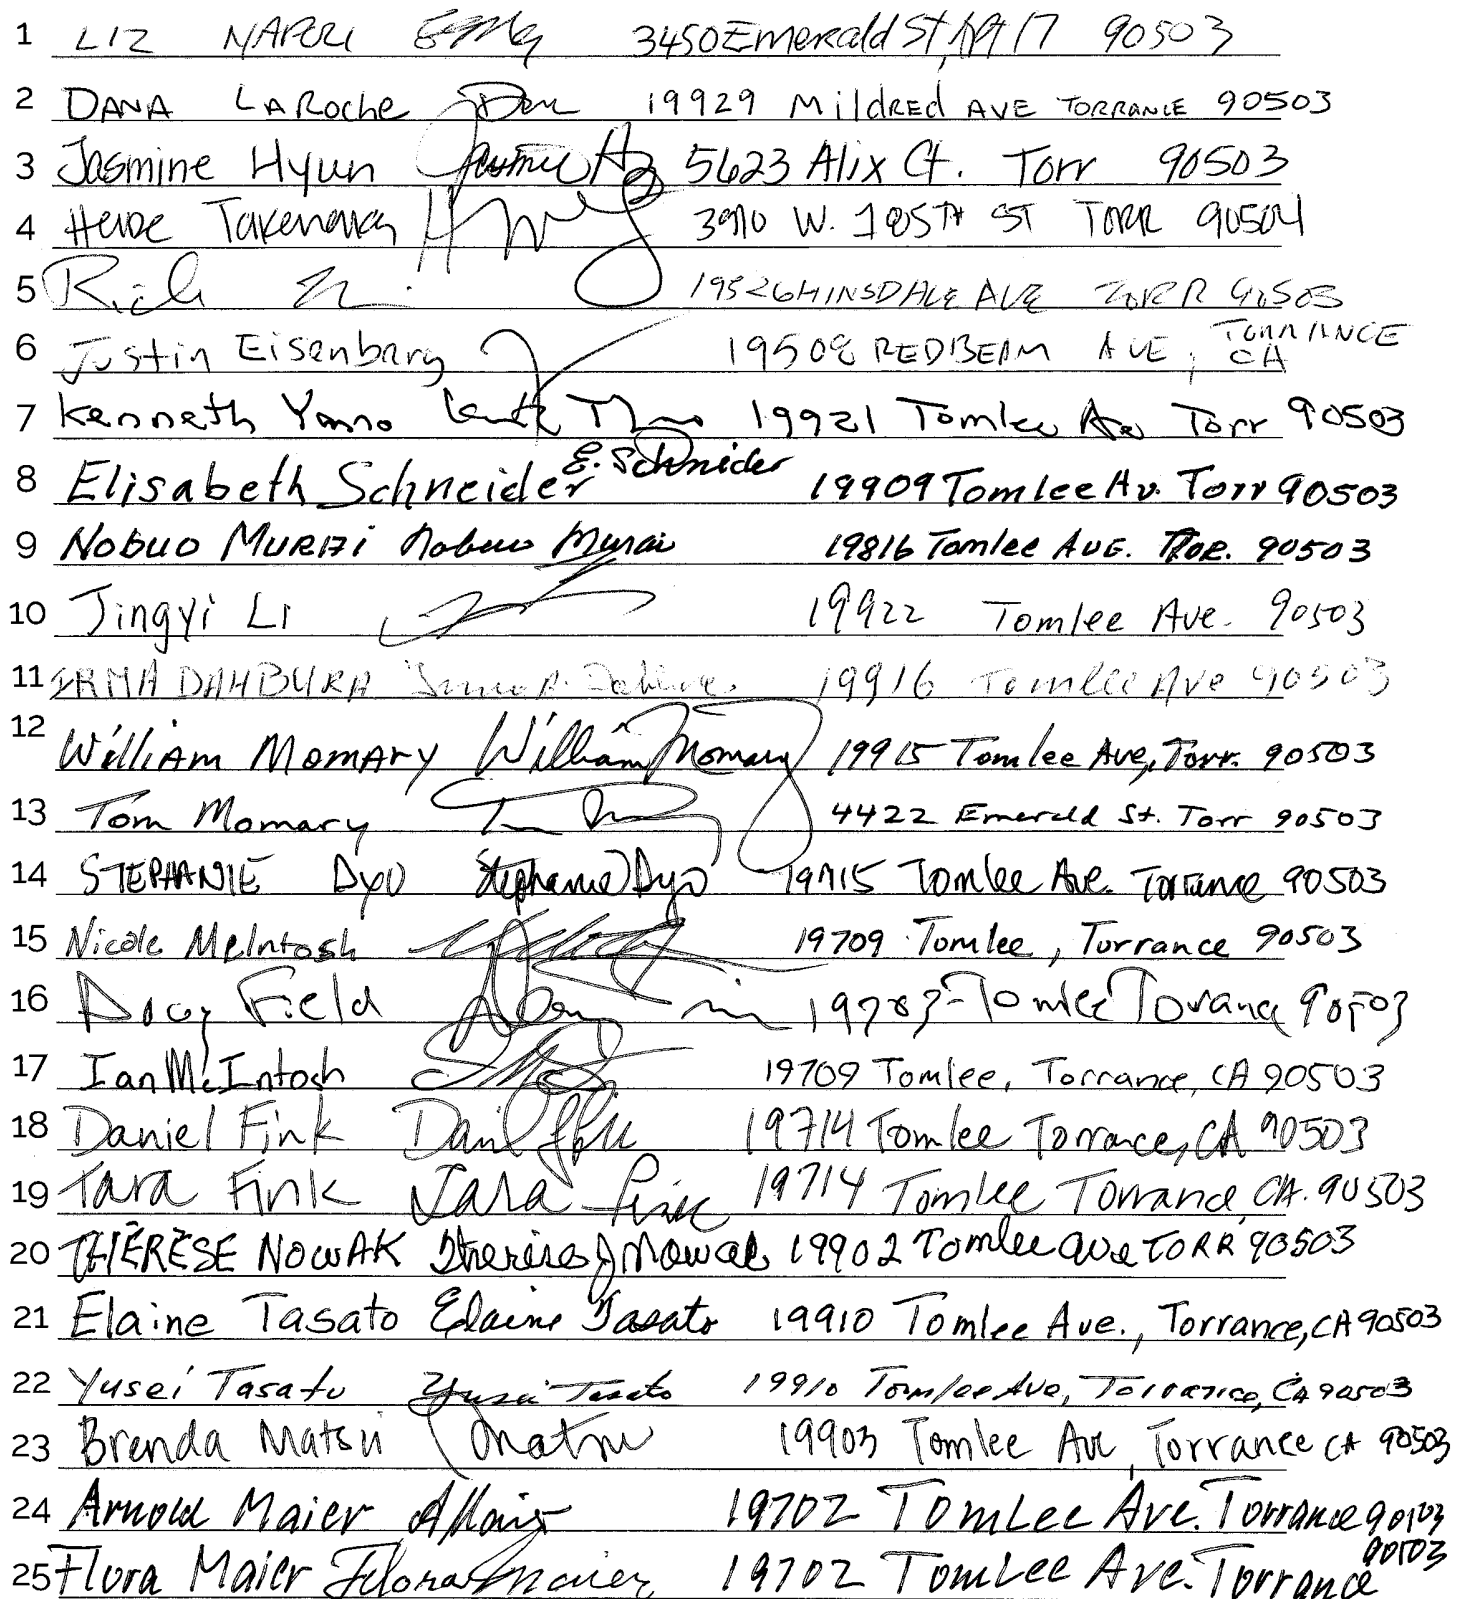 1 LIZ NAPOLI 3450 Emerald St, Apt 17 90503
2 DANA LAROche 19929 MildRED AVE TORRANCE 90503
3 Jasmine Hyun 5623 Alix Ct. Torr 90503
4 W. 185TH ST TORR 90504
5 Rich 19526 HINSDALE AVE TORR 90503
6 Justin Eisenberg 19508 REDBEAM AVE, TORRANCE CA
7 Kenneth Yano 19921 Tomlee Ave Torr 90503
8 Elisabeth Schneider E. Schneider 19909 Tomlee Av. Torr 90503
9 NOBUO MURAI Nobuo Murai 19816 Tomlee AVE. TOR. 90503
10 Jingyi Li 19922 Tomlee Ave. 90503
11 IRMA DAHBURA 19916 Tomlee Ave 90503
12 William MOMARY William Momary 19915 Tomlee Ave, Torr. 90503
13 Tom Momary 4422 Emerald St. Torr 90503
14 STEPHANIE DYO Stephanie Dyo 19715 Tomlee Ave. Torrance 90503
15 Nicole McIntosh 19709 Tomlee, Torrance 90503
16 Field Tomlee Torrance 90503
17 Ian McIntosh 19709 Tomlee, Torrance, CA 90503
18 Daniel Fink 19714 Tomlee Torrance, CA 90503
19 Tara Fink Tara Fink 19714 Tomlee Torrance, CA. 90503
20 THÉRÈSE NOWAK Therese J Nowak 19902 Tomlee ave TORR 90503
21 Elaine Tasato Elaine Tasato 19910 Tomlee Ave., Torrance, CA 90503
22 Yusei Tasato Yusei Tasato 19910 Tomlee Ave, Torrance, CA 90503
23 Brenda Matsu 19903 Tomlee Ave, Torrance CA 90503
24 Arnold Maier 19702 TomLee Ave. Torrance 90503
25 Flora Maier Flora Maier 19702 TomLee Ave. Torrance 90503